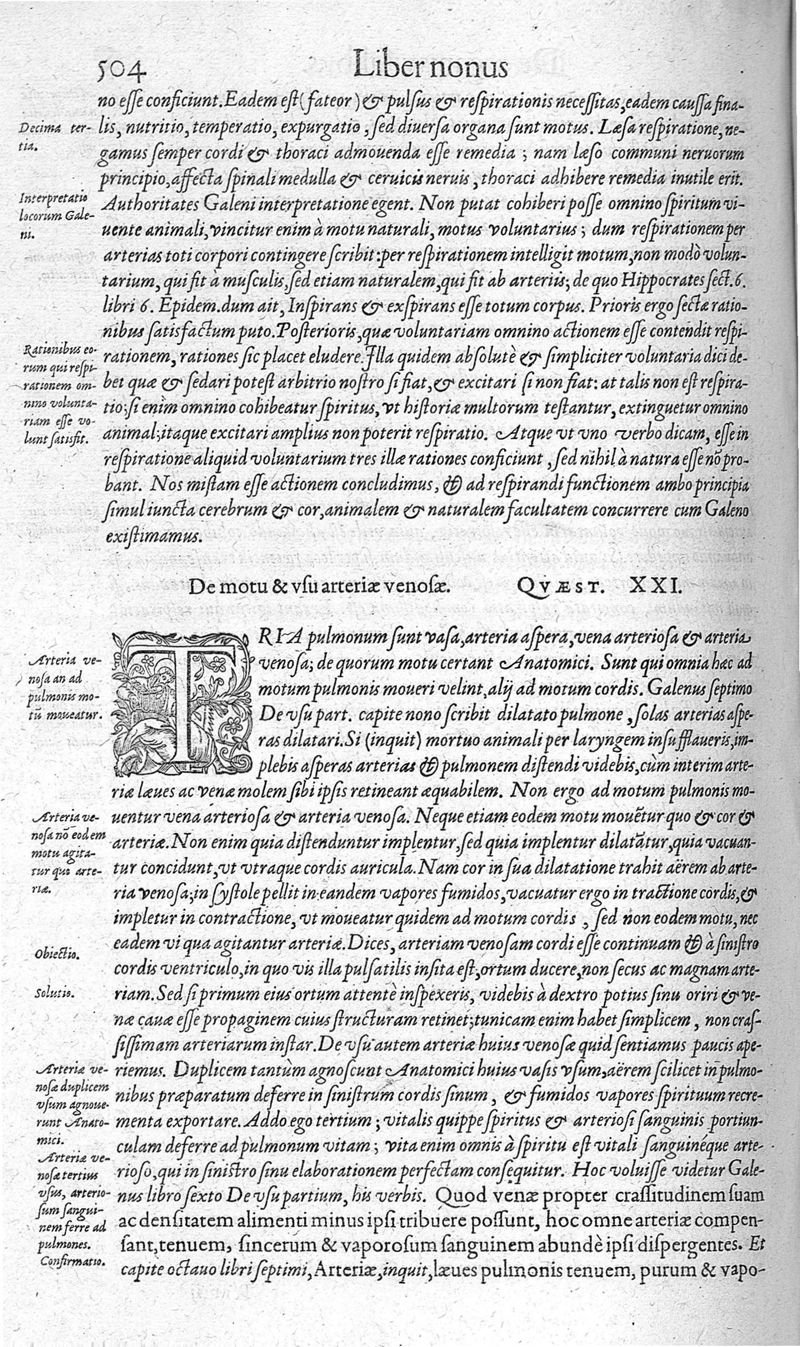 504
Liber nonus
no eſſe conficiunt. Eadem eſt (fateor) & pulſus & reſpirationis neceſſitas, eadem cauſſa fina-
Decima ter-
tia.
lis, nutritio, temperatio, expurgatio, ſed diuerſa organa ſunt motus. Læſa reſpiratione, ne-
gamus ſemper cordi & thoraci admouenda eſſe remedia; nam læſo communi neruorum
principio, affecta ſpinali medulla & ceruicis neruis, thoraci adhibere remedia inutile erit.
Interpretatio
locorum Gale-
ni.
Authoritates Galeni interpretatione egent. Non putat cohiberi poſſe omnino ſpiritum vi-
uente animali, vincitur enim à motu naturali, motus voluntarius; dum reſpirationem per
arterias toti corpori contingere ſcribit: per reſpirationem intelligit motum, non modò volun-
tarium, qui fit à muſculis, ſed etiam naturalem, qui fit ab arteriis; de quo Hippocrates ſect. 6.
libri 6. Epidem. dum ait, Inſpirans & exſpirans eſſe totum corpus. Prioris ergo ſectæ ratio-
nibus ſatisfactum puto. Poſterioris, quæ voluntariam omnino actionem eſſe contendit reſpi-
Rationibus eo-
rum qui reſpi-
rationem om-
nino volunta-
riam eſſe vo-
lunt ſatisfit.
rationem, rationes ſic placet eludere. Illa quidem abſolutè & ſimpliciter voluntaria dici de-
bet quæ & ſedari poteſt arbitrio noſtro ſi fiat, & excitari ſi non fiat: at talis non eſt reſpira-
tio; ſi enim omnino cohibeatur ſpiritus, vt hiſtoriæ multorum teſtantur, extinguetur omnino
animal; itaque excitari amplius non poterit reſpiratio. Atque vt vno verbo dicam, eſſe in
reſpiratione aliquid voluntarium tres illæ rationes conficiunt, ſed nihil à natura eſſe nō pro-
bant. Nos miſtam eſſe actionem concludimus, & ad reſpirandi functionem ambo principia
ſimul iuncta cerebrum & cor, animalem & naturalem facultatem concurrere cum Galeno
exiſtimamus.
De motu & vſu arteriæ venoſæ. QVÆST. XXI.
TRIA pulmonum ſunt vaſa, arteria aſpera, vena arterioſa & arteria
Arteria ve-
noſa an ad
pulmonis mo-
tū moueatur.
venoſa; de quorum motu certant Anatomici. Sunt qui omnia hæc ad
motum pulmonis moueri velint, alij ad motum cordis. Galenus ſeptimo
De vſu part. capite nono ſcribit dilatato pulmone, ſolas arterias aſpe-
ras dilatari. Si (inquit) mortuo animali per laryngem inſufflaueris, im-
plebis aſperas arterias & pulmonem diſtendi videbis, cùm interim arte-
riæ læues ac venæ molem ſibi ipſis retineant æquabilem. Non ergo ad motum pulmonis mo-
Arteria ve-
noſa nō eodem
motu agita-
tur quo arte-
riæ.
uentur vena arterioſa & arteria venoſa. Neque etiam eodem motu mouētur quo & cor &
arteriæ. Non enim quia diſtenduntur implentur, ſed quia implentur dilatātur, quia vacuan-
tur concidunt, vt vtraque cordis auricula. Nam cor in ſua dilatatione trahit aërem ab arte-
ria venoſa; in ſyſtole pellit in eandem vapores fumidos, vacuatur ergo in tractione cordis, &
impletur in contractione, vt moueatur quidem ad motum cordis, ſed non eodem motu, nec
Obiectio.
eadem vi qua agitantur arteriæ. Dices, arteriam venoſam cordi eſſe continuam & à ſiniſtro
cordis ventriculo, in quo vis illa pulſatilis inſita eſt, ortum ducere, non ſecus ac magnam arte-
Solutio.
riam. Sed ſi primum eius ortum attentè inſpexeris, videbis à dextro potius ſinu oriri & ve-
næ cauæ eſſe propaginem cuius ſtructuram retinet; tunicam enim habet ſimplicem, non craſ-
ſiſſimam arteriarum inſtar. De vſu autem arteriæ huius venoſæ quid ſentiamus paucis ape-
Arteriæ ve-
noſæ duplicem
vſum agnoue-
runt Anato-
mici.
riemus. Duplicem tantùm agnoſcunt Anatomici huius vaſis vſum, aërem ſcilicet in pulmo-
nibus præparatum deferre in ſiniſtrum cordis ſinum, & fumidos vapores ſpirituum recre-
menta exportare. Addo ego tertium; vitalis quippe ſpiritus & arterioſi ſanguinis portiun-
culam deferre ad pulmonum vitam; vita enim omnis à ſpiritu eſt vitali ſanguinéque arte-
Arteriæ ve-
noſæ tertius
vſus, arterio-
ſum ſangui-
nem ferre ad
pulmones.
rioſo, qui in ſiniſtro ſinu elaborationem perfectam conſequitur. Hoc voluiſſe videtur Gale-
nus libro ſexto De vſu partium, his verbis. Quod venæ propter craſſitudinem ſuam
ac denſitatem alimenti minus ipſi tribuere poſſunt, hoc omne arteriæ compen-
ſant, tenuem, ſincerum & vaporoſum ſanguinem abundè ipſi diſpergentes. Et
Confirmatio.
capite octauo libri ſeptimi, Arteriæ, inquit, læues pulmonis tenuem, purum & vapo-